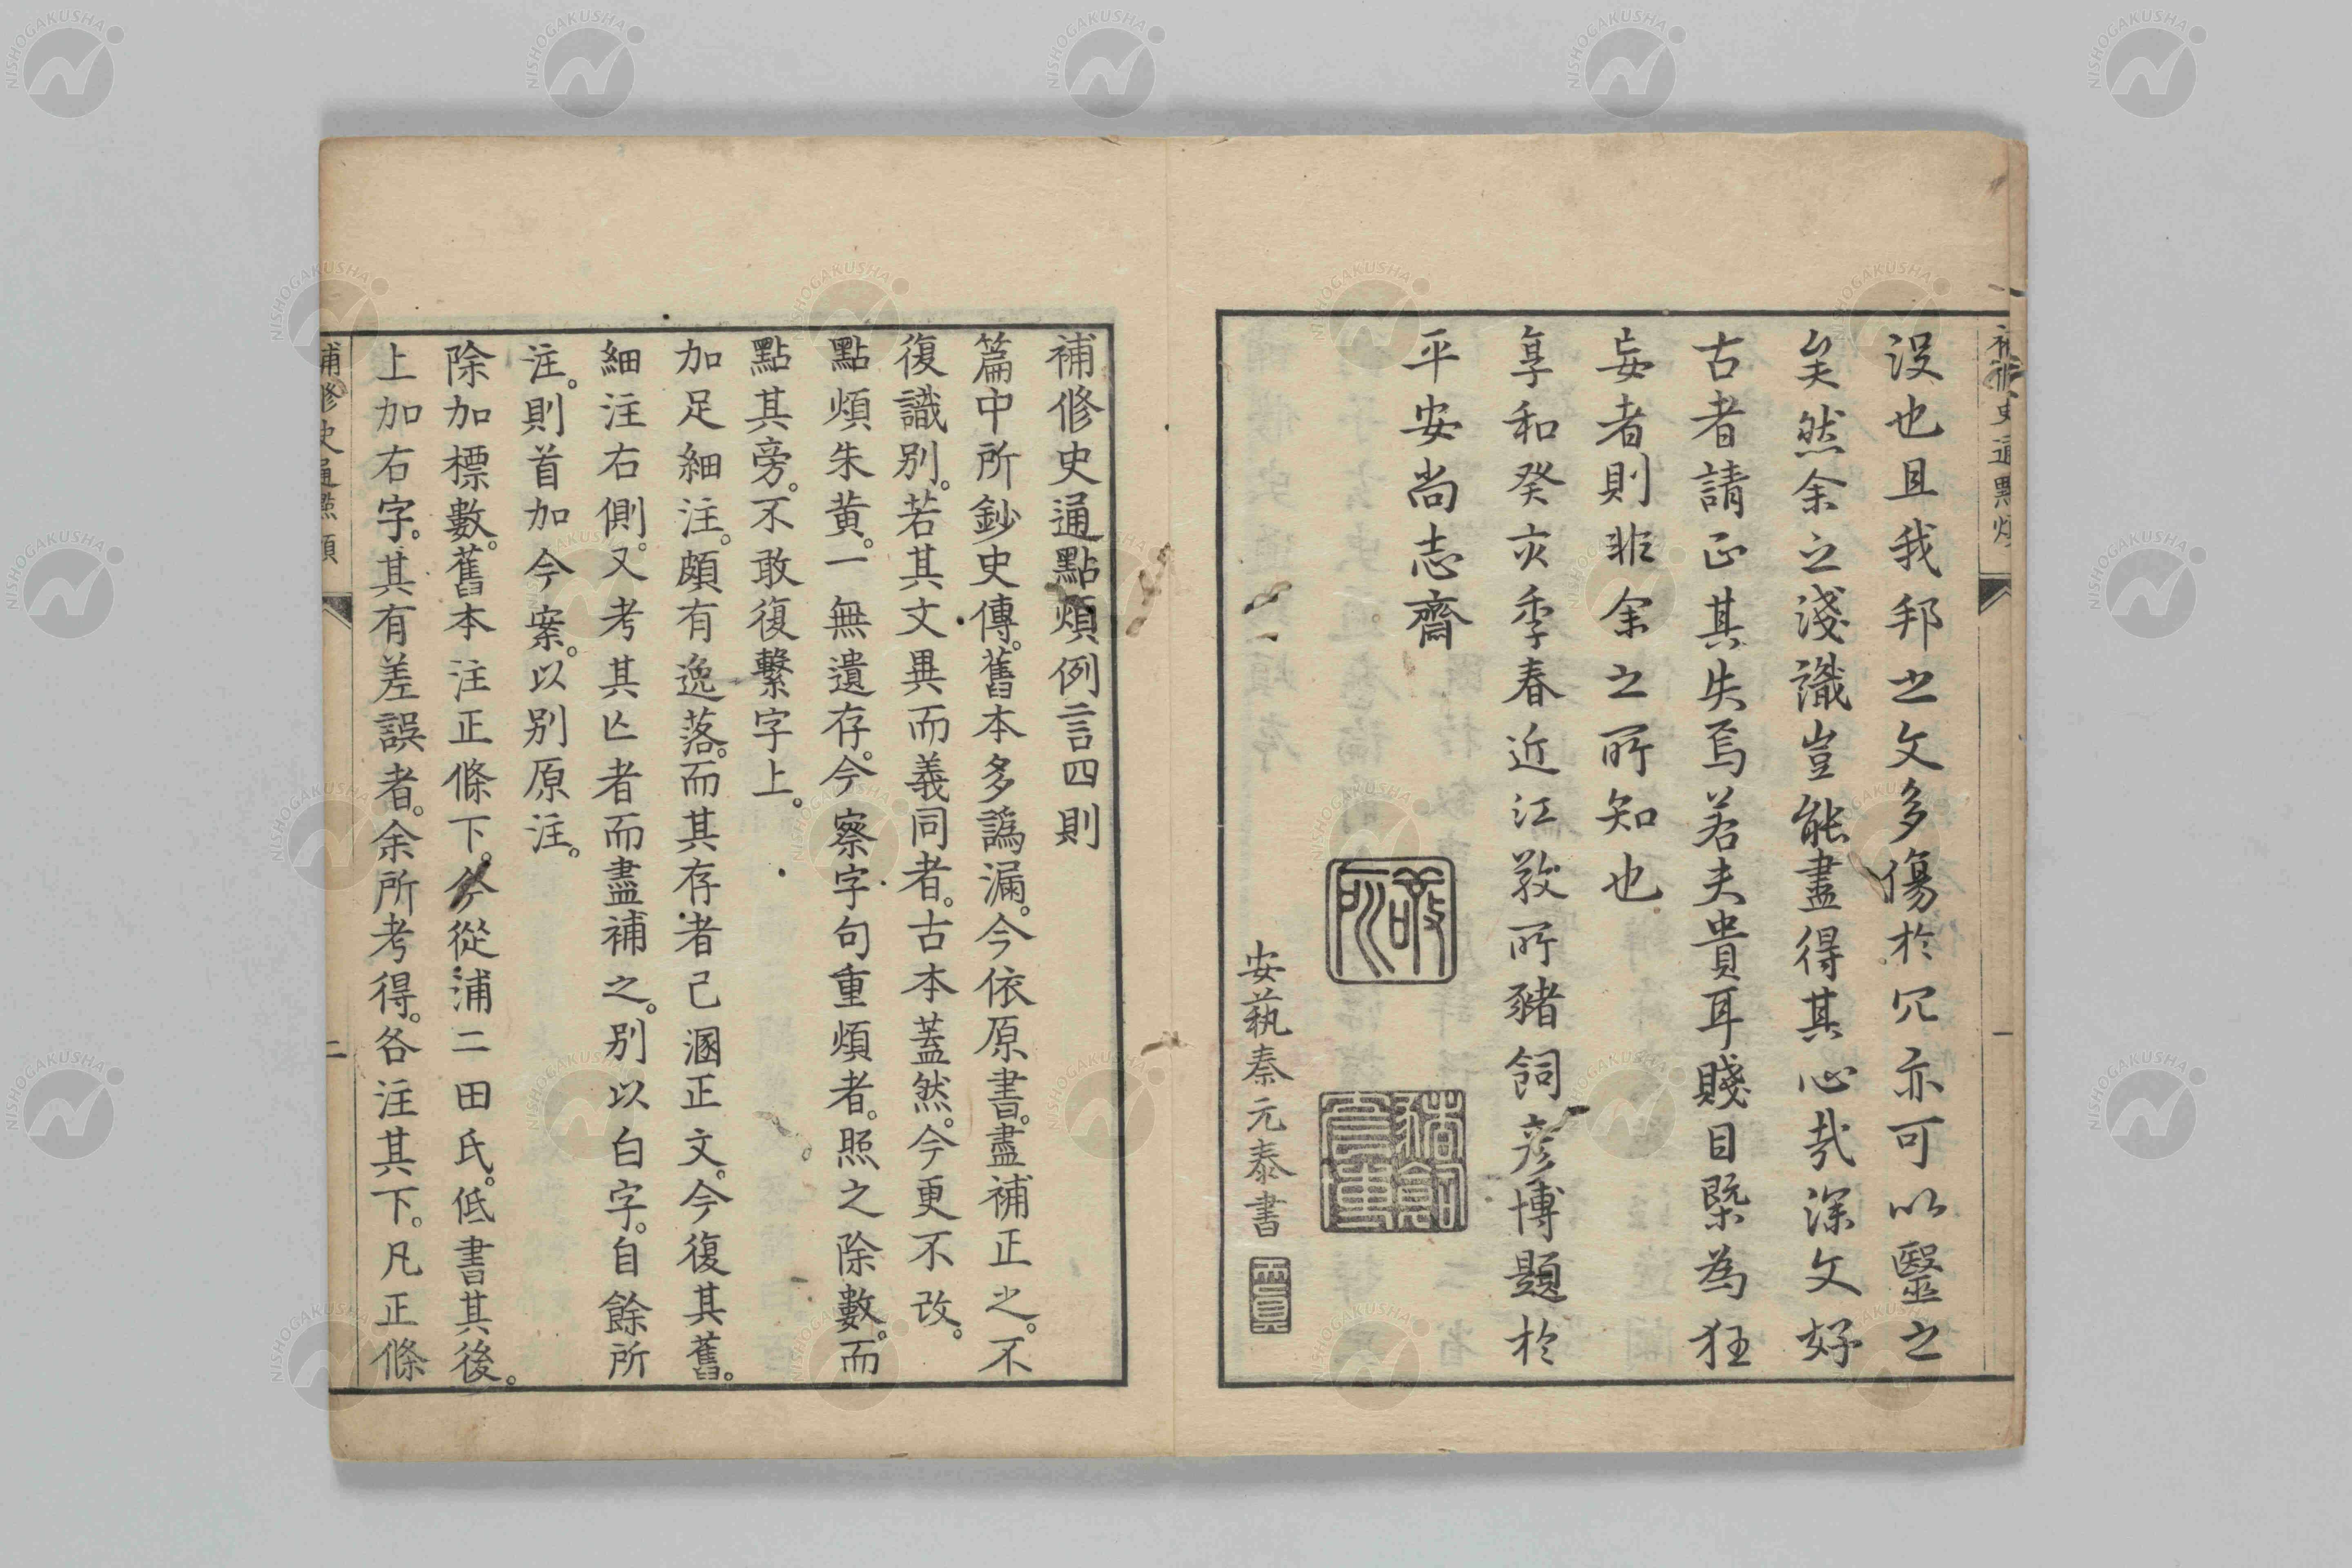 没也且我邦之文多傷於冗亦可以毉之
矣然余之淺識豈能盡得其心㢤深文好
古者請正其失焉若夫貴耳賤目槩為狂
妄者則非余之所知也
享和癸亥季春近江敬所豬飼彦博題於
平安尚志齋
安藝秦元泰書
補修史通點煩例言四則
篇中所鈔史傳。舊本多譌漏。今依原書。盡補正之。不
復識別。若其文異而義同者。古本蓋然。今更不改。
點煩朱黄。一無遺存。今察字句重煩者。照之除數。而
點其旁。不敢復繫字上。
加足細注。頗有逸落。而其存者已溷正文。今復其舊。
細注右側。又考其亡者而盡補之。別以白字。自餘所
注。則首加今案。以別原注。
除加標數。舊本注正條下。今從浦二田氏。低書其後。
上加右字。其有差誤者。余所考得。各注其下。凡正條
補修史通點煩
二
NISHOGAKUSHA